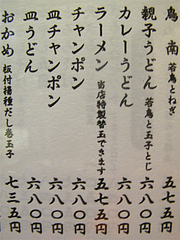 鳥南 若鳥とねぎ 五七五円
親子うどん 若鳥と玉子とじ 六八〇円
カレーうどん 六八〇円
ラーメン 当店特製替玉できます 五七五円
チャンポン 六八〇円
皿チャンポン 六八〇円
皿うどん 六八〇円
おかめ 板付揚種だし巻玉子 七三五円